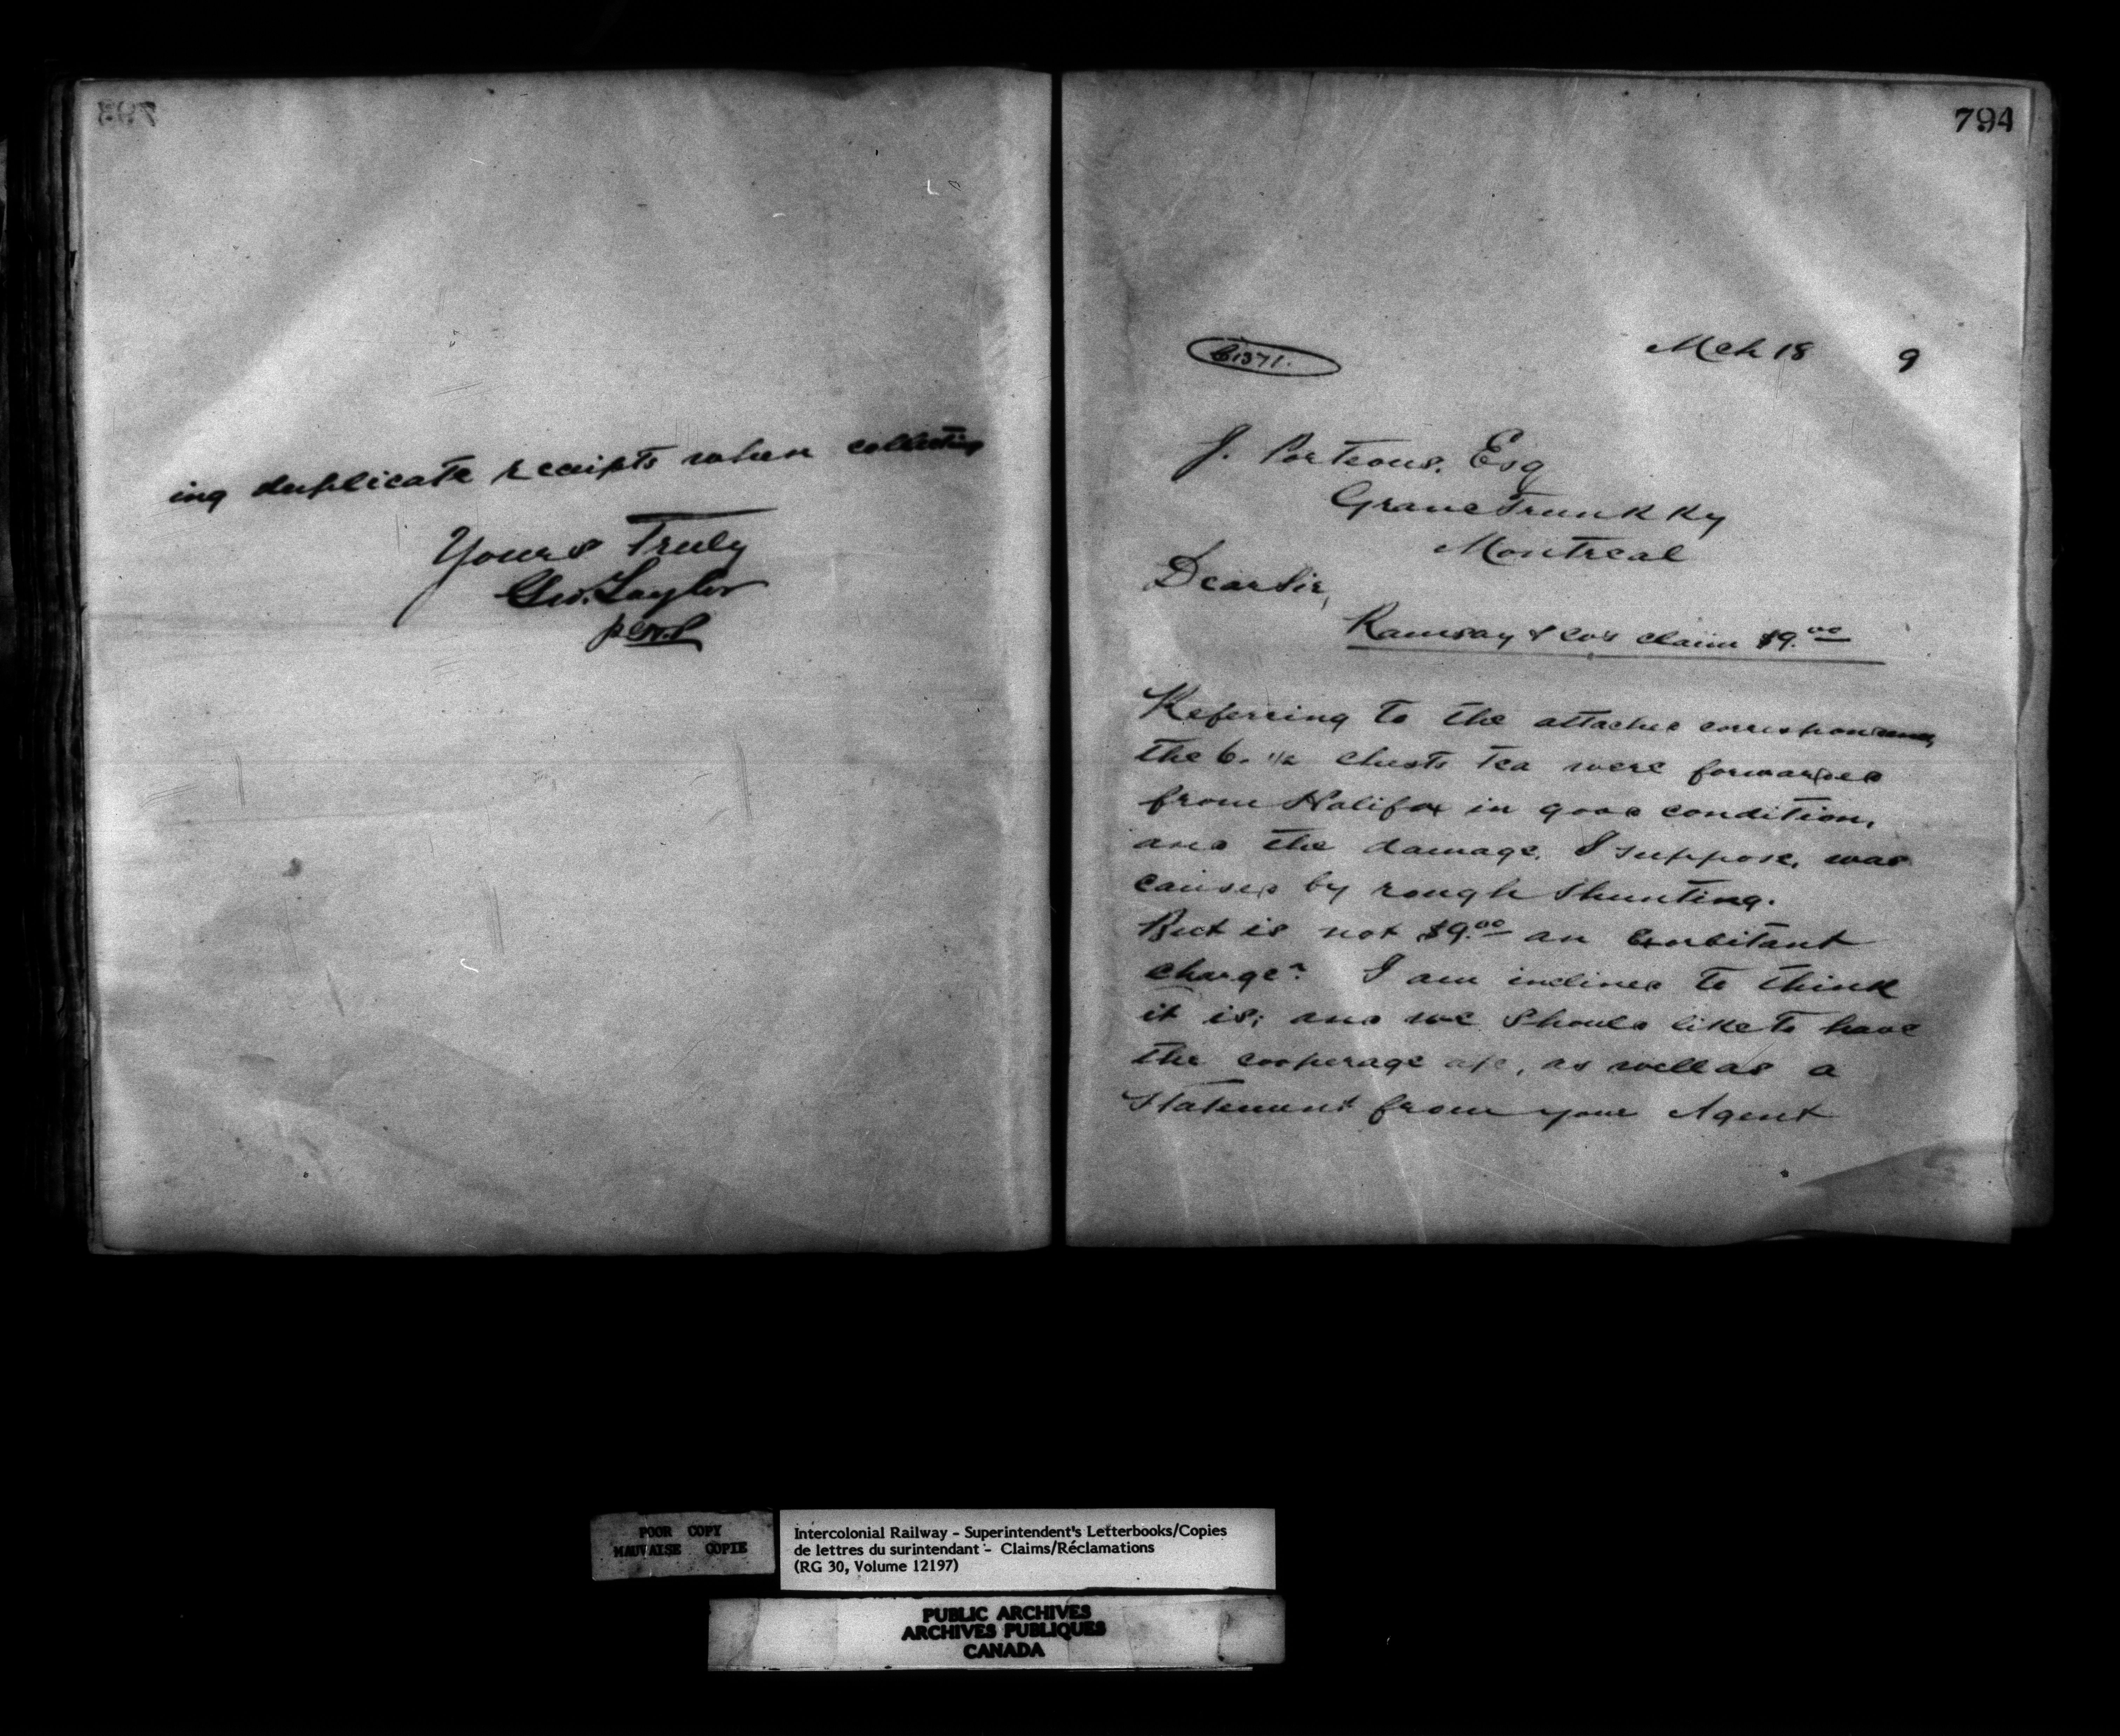 793
ing duplicate receipts when collecting
Yours Truly
Geo. Taylor
794
Mch 18 9
J. Porteous, Esq
Grand Trunk Ry
Montreal
Dear Sir,
Ramsay & Co's claim $9.00
Referring to the attached correspondence,
the 6. 1/2 chests tea were forwarded
from Halifax in good condition,
and the damage, I suppose, was
caused by rough shunting.
But is not $9.00 an Exorbitant
charge? I am inclined to think
it is; and we should like to have
the cooperage a/c, as well as a
statement from your Agent
POOR COPY
MAUVAISE COPIE
Intercolonial Railway - Superintendent's Letterbooks/Copies
de lettres du surintendant - Claims/Réclamations
(RG 30, Volume 12197)
PUBLIC ARCHIVES
ARCHIVES PUBLIQUES
CANADA